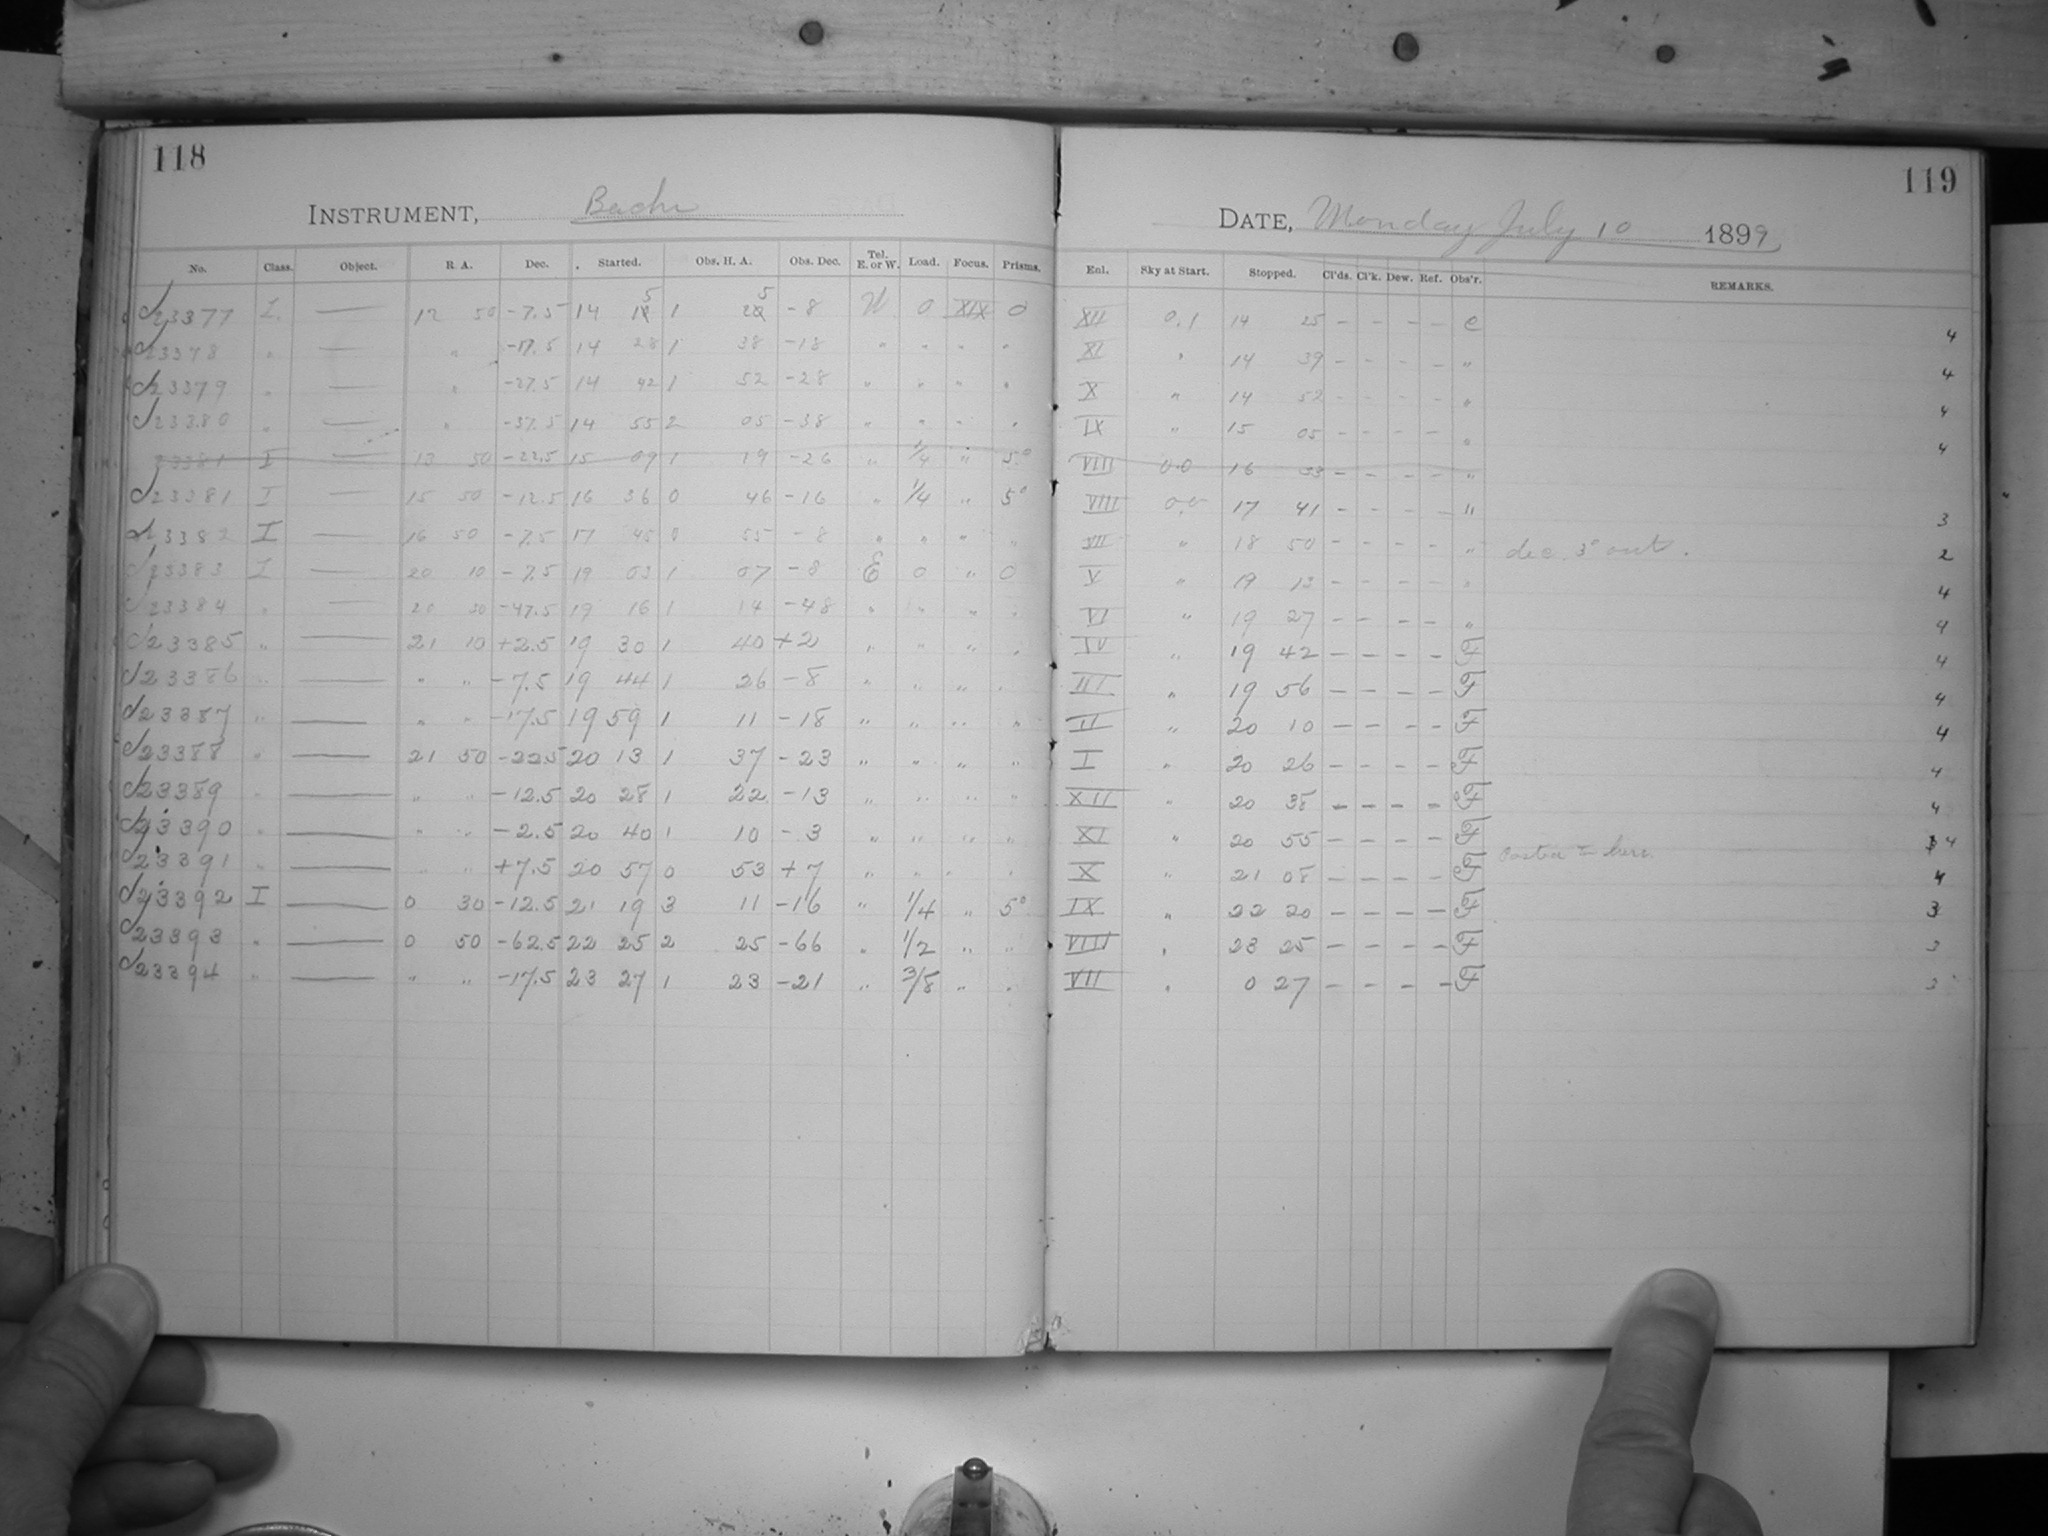 118
INSTRUMENT, Bache
No. Class. Object. R. A. Dec. Started. Obs. H. A. Obs. Dec. Tel. E. or W. Load. Focus. Prisms.
23377 I. — 12 50 -7.5 14 15 1 25 -8 W 0 XIX 0
23378 " — " -17.5 14 28 1 38 -18 " " " "
23379 " — " -27.5 14 42 1 52 -28 " " " "
23380 " — " -37.5 14 55 2 05 -38 " " " "
23381 I — 13 50 -22.5 15 09 1 19 -26 " 1/4 " 5°
23381 I — 15 50 -12.5 16 36 0 46 -16 " 1/4 " 5°
23382 I 16 50 -7.5 17 45 0 55 -8 " " " "
23383 I — 20 10 -7.5 19 03 1 07 -8 E 0 " 0
23384 " — 20 30 -47.5 19 16 1 14 -48 " " " "
23385 " — 21 10 +2.5 19 30 1 40 +2 " " "
23386 " — " " -7.5 19 44 1 26 -8 " " " "
23387 " — " " -17.5 19 59 1 11 -18 " " " "
23388 " — 21 50 -22.5 20 13 1 37 -23 " " " "
23389 " — " " -12.5 20 28 1 22 -13 " " " "
23390 " — " " -2.5 20 40 1 10 -3 " " " "
23391 — " " +7.5 20 57 0 53 +7 " " " "
23392 I — 0 30 -12.5 21 19 3 11 -16 " 1/4 " 5°
23393 " — 0 50 -62.5 22 25 2 25 -66 " 1/2 " "
23394 " — " " -17.5 23 27 1 23 -21 " 3/8 " "
119
DATE, Monday July 10 1899
Enl. Sky at Start. Stopped. Cl'ds. Cl'k. Dew. Ref. Obs'r. REMARKS.
XII 0.1 14 25 - - - - C 4
XI " 14 39 - - - - " 4
X " 14 52 - - - - " 4
IX " 15 05 - - - - " 4
VIII 0.0 16 33 - - - - "
VIII 0.0 17 41 - - - - " 3
VII " 18 50 - - - - " dec. 3° out. 2
V " 19 13 - - - - " 4
VI " 19 27 - - - - " 4
IV " 19 42 - - - - F 4
III " 19 56 - - - - F 4
II " 20 10 - - - - F 4
I " 20 26 - - - - F 4
XII " 20 38 - - - - F 4
XI " 20 55 - - - - F 4
X " 21 08 - - - - F 4
IX " 22 20 - - - - F 3
VIII " 23 25 - - - - F 3
VII " 0 27 - - - - F 3